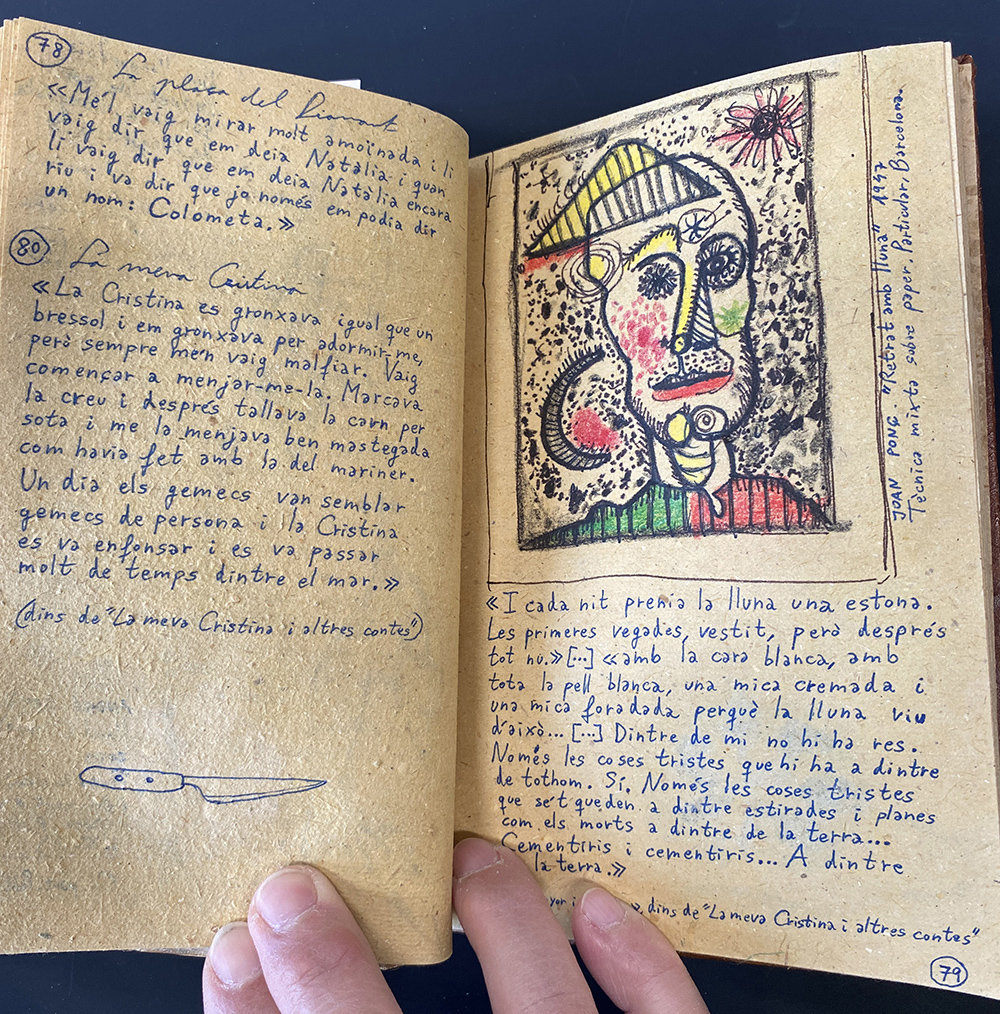 78
La plaça del Diamant
«Me'l vaig mirar molt amoïnada i li
vaig dir que em deia Natàlia i quan
li vaig dir que em deia Natàlia encara
riu i va dir que jo només em podia dir
un nom: Colometa.»
80
La meva Cristina
«La Cristina es gronxava igual que un
bressol i em gronxava per adormir-me,
però sempre me'n vaig malfiar. Vaig
començar a menjar-me-la. Marcava
la creu i després tallava la carn per
sota i me la menjava ben mastegada
com havia fet amb la del mariner.
Un dia els gemecs van semblar
gemecs de persona i la Cristina
es va enfonsar i es va passar
molt de temps dintre el mar.»
(dins de "La meva Cristina i altres contes")
JOAN PONÇ. "Retrat amb lluna" 1947
Tècnica mixta sobre paper. Particular, Barcelona.
«I cada nit prenia la lluna una estona.
Les primeres vegades, vestit, però després
tot nu.» [...] «amb la cara blanca, amb
tota la pell blanca, una mica cremada i
una mica foradada perquè la lluna viu
d'això... [...] Dintre de mi no hi ha res.
Només les coses tristes que hi ha a dintre
de tothom. Sí. Només les coses tristes
que se't queden a dintre estirades i planes
com els morts a dintre de la terra...
Cementiris i cementiris... A dintre
la terra.»
dins de "La meva Cristina i altres contes"
79